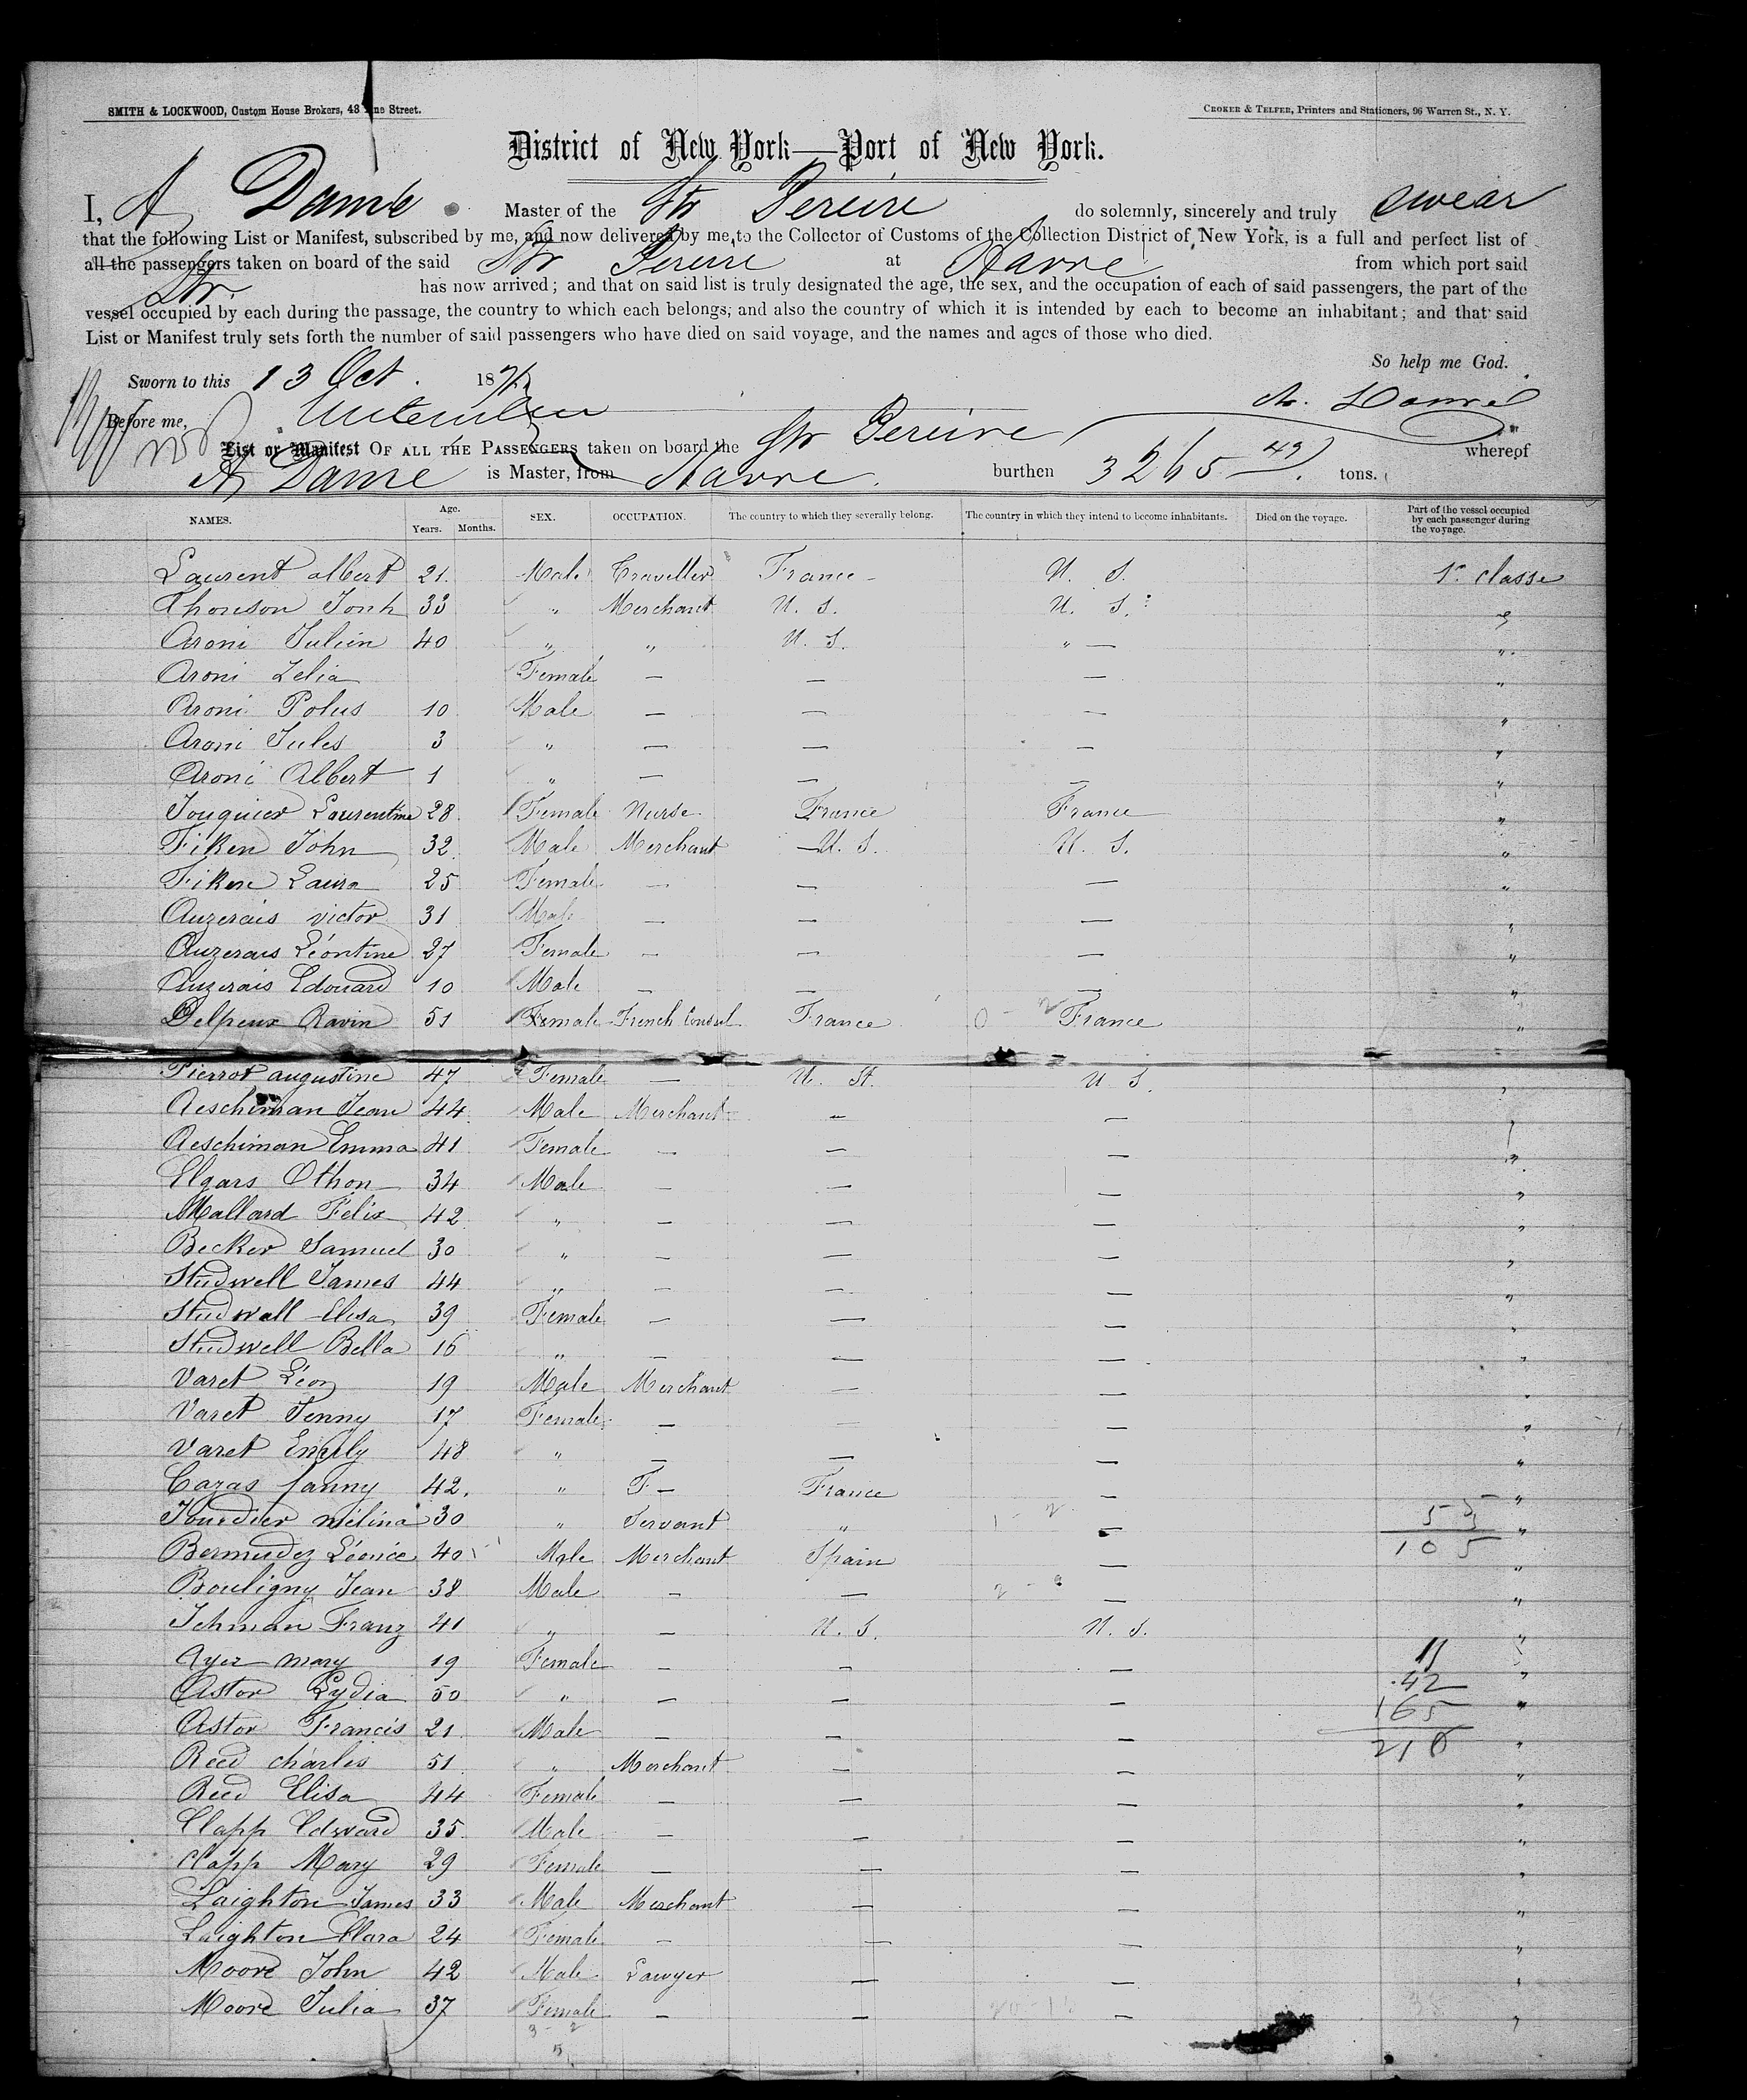 SMITH & LOCKWOOD, Custom House Brokers, 48 Pine Street.
CROKER & TELFER, Printers and Stationers, 96 Warren St., N. Y.
District of New York—Port of New York.
I, A Damé Master of the Str Pereire do solemnly, sincerely and truly swear
that the following List or Manifest, subscribed by me, and now delivered by me, to the Collector of Customs of the Collection District of New York, is a full and perfect list of
all the passengers taken on board of the said Str Pereire at Havre from which port said
Str. has now arrived; and that on said list is truly designated the age, the sex, and the occupation of each of said passengers, the part of the
vessel occupied by each during the passage, the country to which each belongs; and also the country of which it is intended by each to become an inhabitant; and that said
List or Manifest truly sets forth the number of said passengers who have died on said voyage, and the names and ages of those who died.
So help me God.
Sworn to this 13 Oct. 187
Before me,
List or Manifest OF ALL THE PASSENGERS taken on board the Str Pereire whereof
A Damé is Master, from Havre. burthen 3265 49 tons.
NAMES. Age. Years. Months. SEX. OCCUPATION. The country to which they severally belong. The country in which they intend to become inhabitants. Died on the voyage. Part of the vessel occupied by each passenger during the voyage.
Laurent albert 21 Male Traveller France U. S. 1r classe
Thonson Jonh 33 " Merchant U. S. U. S. "
Aroni Julien 40 " " U. S. " — "
Aroni Zelia Female — — — "
Aroni Polus 10 Male — — — "
Aroni Jules 3 " — — — "
Aroni Albert 1 " — — — "
Jouquier Laurentine 28 Female Nurse France France "
Fiken John 32 Male Merchant —U. S. U. S. "
Fiken Laura 25 Female — — — "
Auzerais victor 31 Male — — — "
Auzerais Léontine 27 Female — — — "
Auzerais Edouard 10 Male — — — "
Delpeux Ravin 51 Female French Consul France France "
Pierrot augustine 47 Female — U. St. U S. "
Aeschiman Jean 44 Male Merchant — — "
Aeschiman Emma 41 Female — — — "
Elgars Othon 34 Male — — — "
Mallard Félix 42 " — — — "
Becker Samuel 30 " — — — "
Studwell James 44 " — — — "
Studwall Elisa 39 Female — — — "
Studwell Bella 16 " — — — "
Varet Léon 19 Male Merchant — — "
Varet Jenny 17 Female — — — "
Varet Emily 48 " — — — "
Cazas fanny 42. " F — France — "
Tourdier mélina 30 " Servant " — "
Bermudez Léonice 40 Male Merchant Spain — "
Bouligny Jean 38 Male — — — "
Schman Franz 41 " — U. S. U. S. "
Ayer mary 19 Female — — — "
Astor Lydia 50 " — — — "
Astor Francis 21 Male — — — "
Reed charles 51 " Merchant — — "
Reed Elisa 44 Female — — — "
Clapp Edward 35 Male — — — "
Clapp Mary 29 Female — — — "
Laighton James 33 Male Merchant — — "
Laighton Clara 24 Female — — — "
Moore John 42 Male Lawyer — — "
Moore Julia 37 Female — — — "